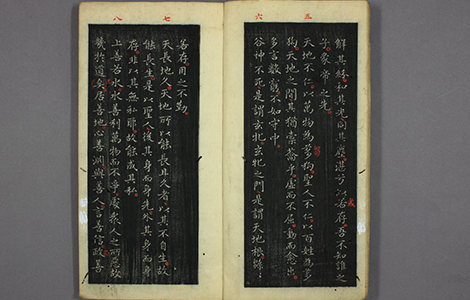 五
六
解其紛和其光同其塵湛兮似若存吾不知誰之
或
子象帝之先
天地不仁以萬物為芻狗聖人不仁以百姓為芻
狗天地之間其猶橐籥乎虛而不屈動而愈出
多言數窮不如守中
谷神不死是謂玄牝玄牝之門是謂天地根綿綿
七
八
若存用之不勤
天長地久天地所以能長且久者以其不自生故
能長生是以聖人後其身而身先外其身而身
存非以其無私耶故能成其私
上善若水水善利萬物而不爭處衆人之所惡故
幾於道矣居善地心善淵與善人言善信政善